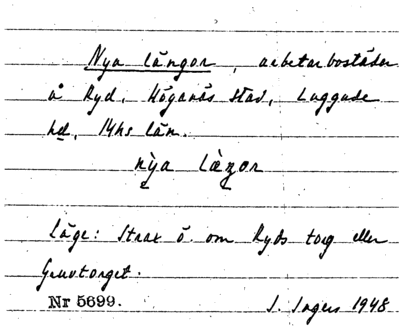 Nya längor, arbetarbostäder
å Ryd, Höganäs stad, Luggude
hd, Mhs län.
nỳa làŋor
Läge: Strax ö. om Ryds torg eller
Gruvtorget.
Nr 5699. J. Ingers 1948